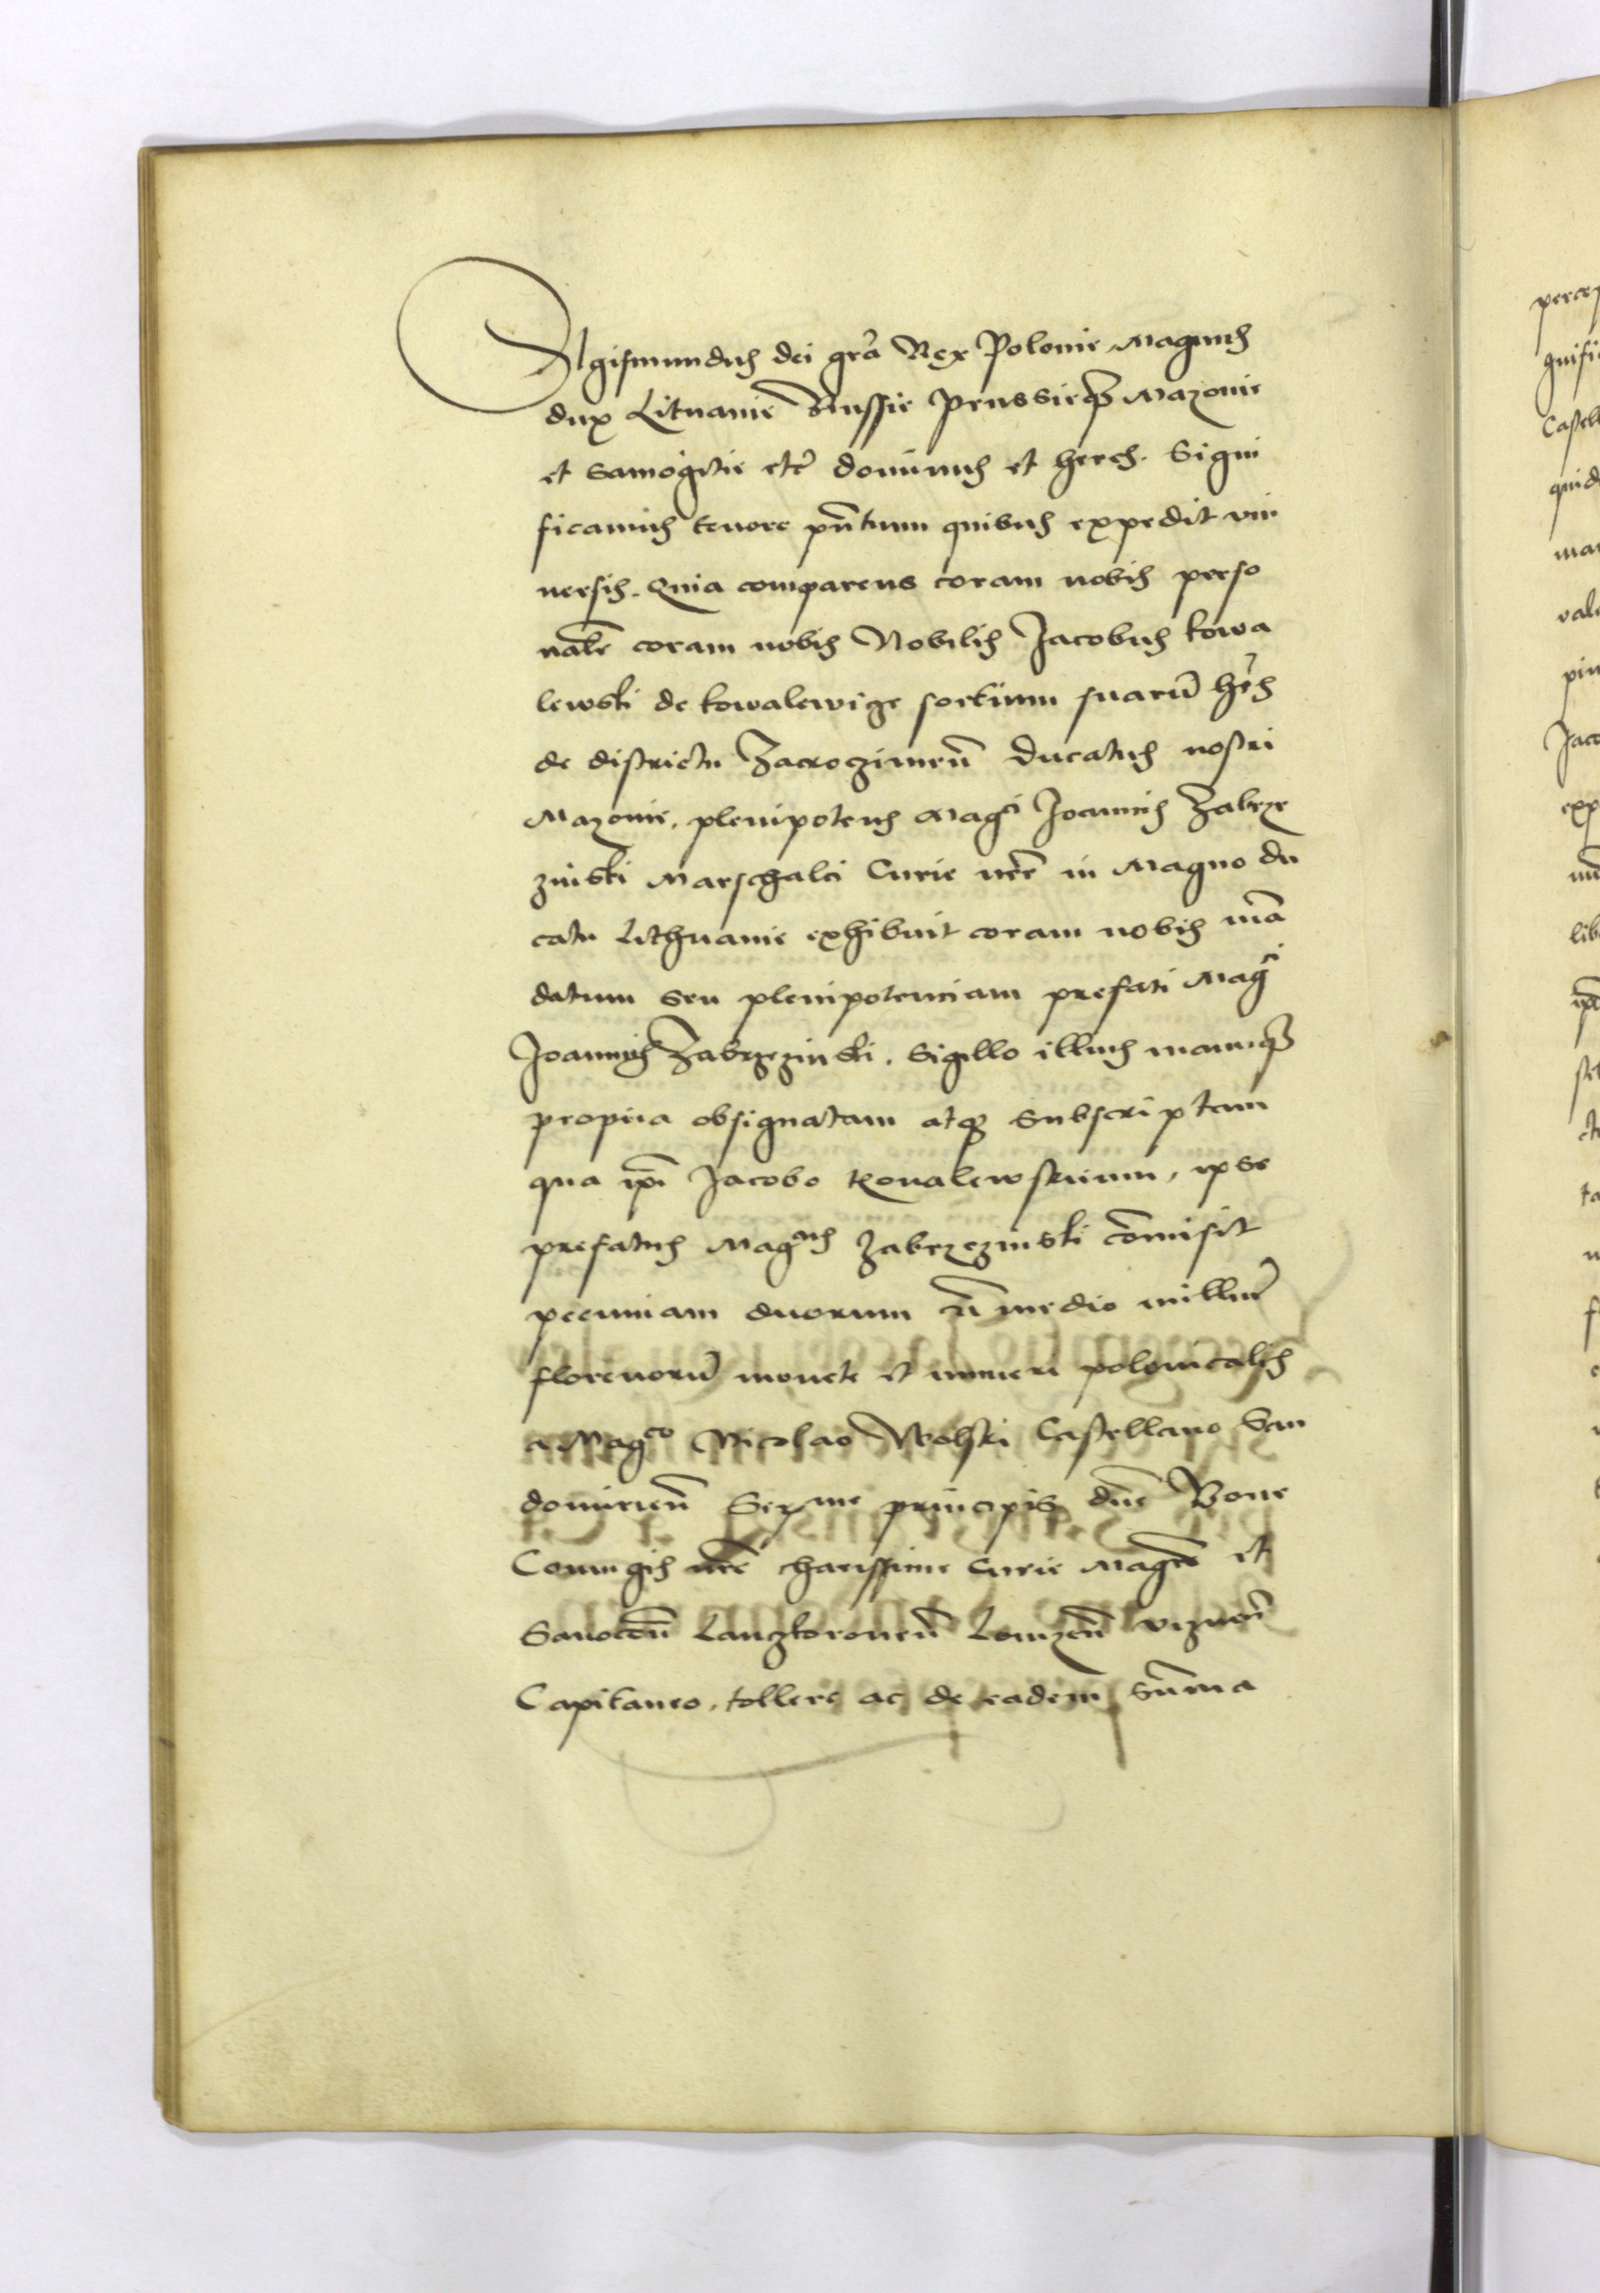 Sigismundus dei grã Rex Polonie Magnus
dux Lituanie Russie Prussieqꝫ Mazouie
et Samogitie etc̃ dominus et heres. Signi
ficamus tenore pñtium quibus expedit vni
uersis. Quia comparens coram nobis perso
nalr̃ coram nobis Nobilis Jacobus kowa
lewski de kowalewice sortium suarũ hẽs
de districtu Zacrocimeñ Ducatus nostri
Mazouie, plenipotens Magci Joannis Zabrze
zinski Marschalci Curie nr̃e in Magno du
catu Lithuanie exhibuit coram nobis mã
datum seu plenipotenciam prefati Magci
Joannis Zabrzezinski, Sigillo illius manuqꝫ
propria obsignatam atqꝫ subscriptam
qua ip̃i Jacobo Koualewskium, ipse
prefatus Magcus Zabrzezinski com̃isit
pecuniam duorum cũ medio milliũ
florenorũ monete et numeri polonicalis
a Magco Nicolao Wolski Castellano San
domirieñ Serme principis dñe Bone
Coniugis nr̃e charissime Curie Magro et
Sanoceñ Lanczkoroneñ Lomzeñ vizneñ
Capitaneo, tollere ac de eadem sum̃a